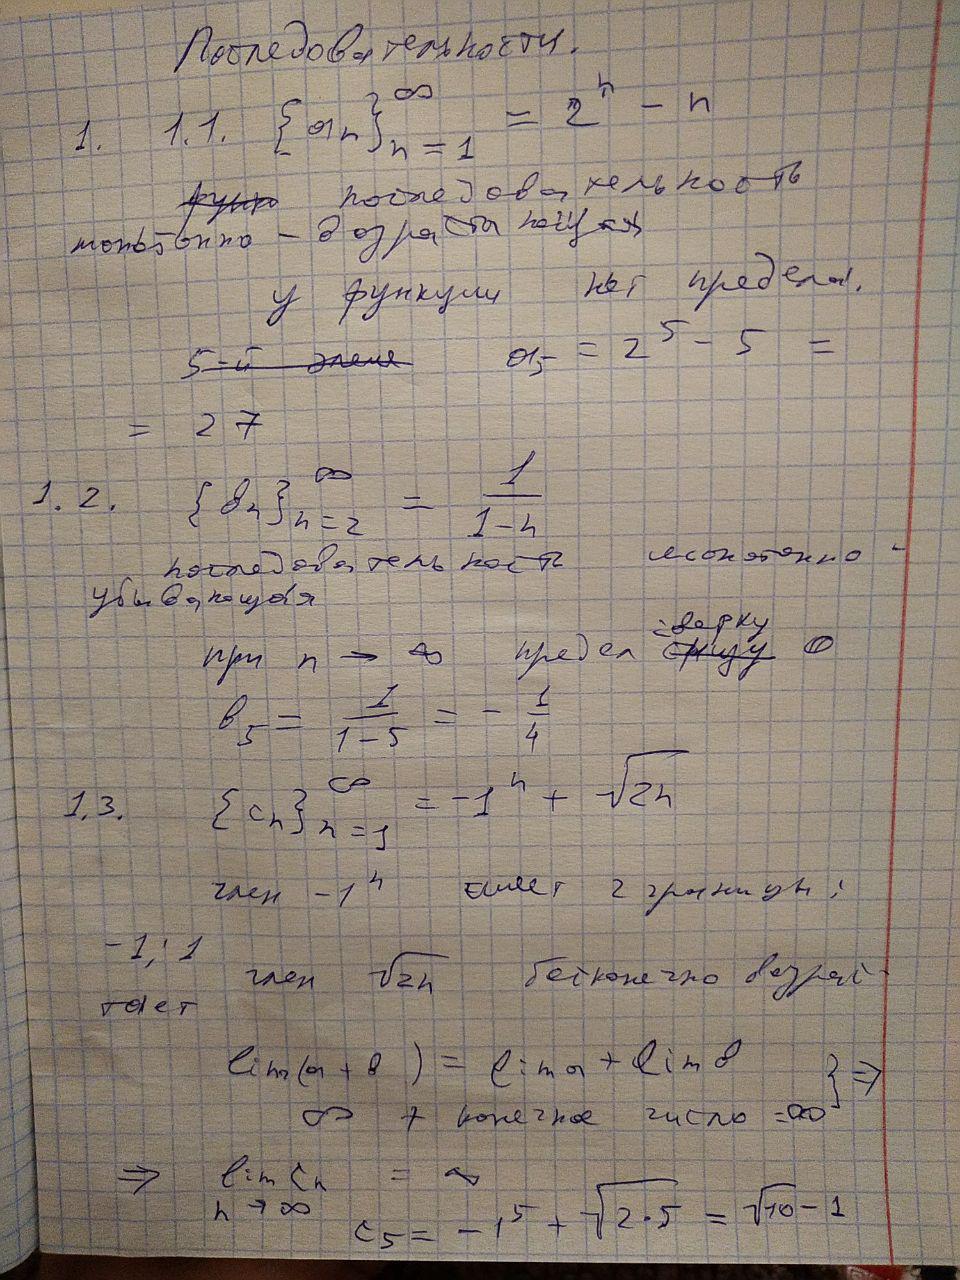 Последовательности.
1. 1.1. {an}_{n=1}^∞ = 2^n - n
последовательность
монотонно - возрастающая
у функции нет предела.
a_5 = 2^5 - 5 =
= 27
1.2. {bn}_{n=2}^∞ = 1/(1-n)
последовательность монотонно -
убывающая
сверху
при n → ∞ предел снизу 0
b_5 = 1/(1-5) = - 1/4
1.3. {cn}_{n=1}^∞ = -1^n + √2n
член -1^n имеет 2 границы:
-1; 1
член √2n бесконечно возрас-
тает
lim(a + b) = lim a + lim b } ⇒
∞ + конечное число = ∞
⇒ lim_{n → ∞} c_n = ∞
c_5 = -1^5 + √2·5 = √10 - 1